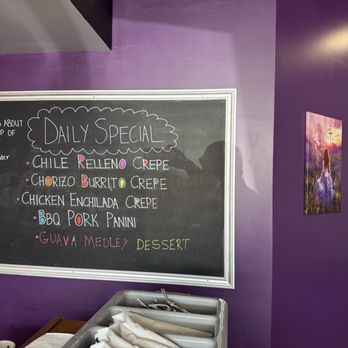 ABOUT
P OF
DAILY SPECIAL
• CHILE RELLENO CREPE
• CHORIZO BURRITO CREPE
• CHICKEN ENCHILADA CREPE
• BBQ PORK PANINI
• GUAVA MEDLEY DESSERT